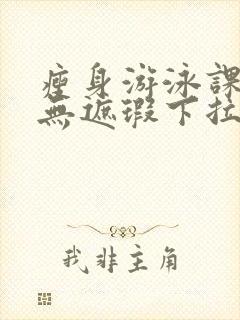 瘦身游泳課
無遮瑕下拉
我非主角